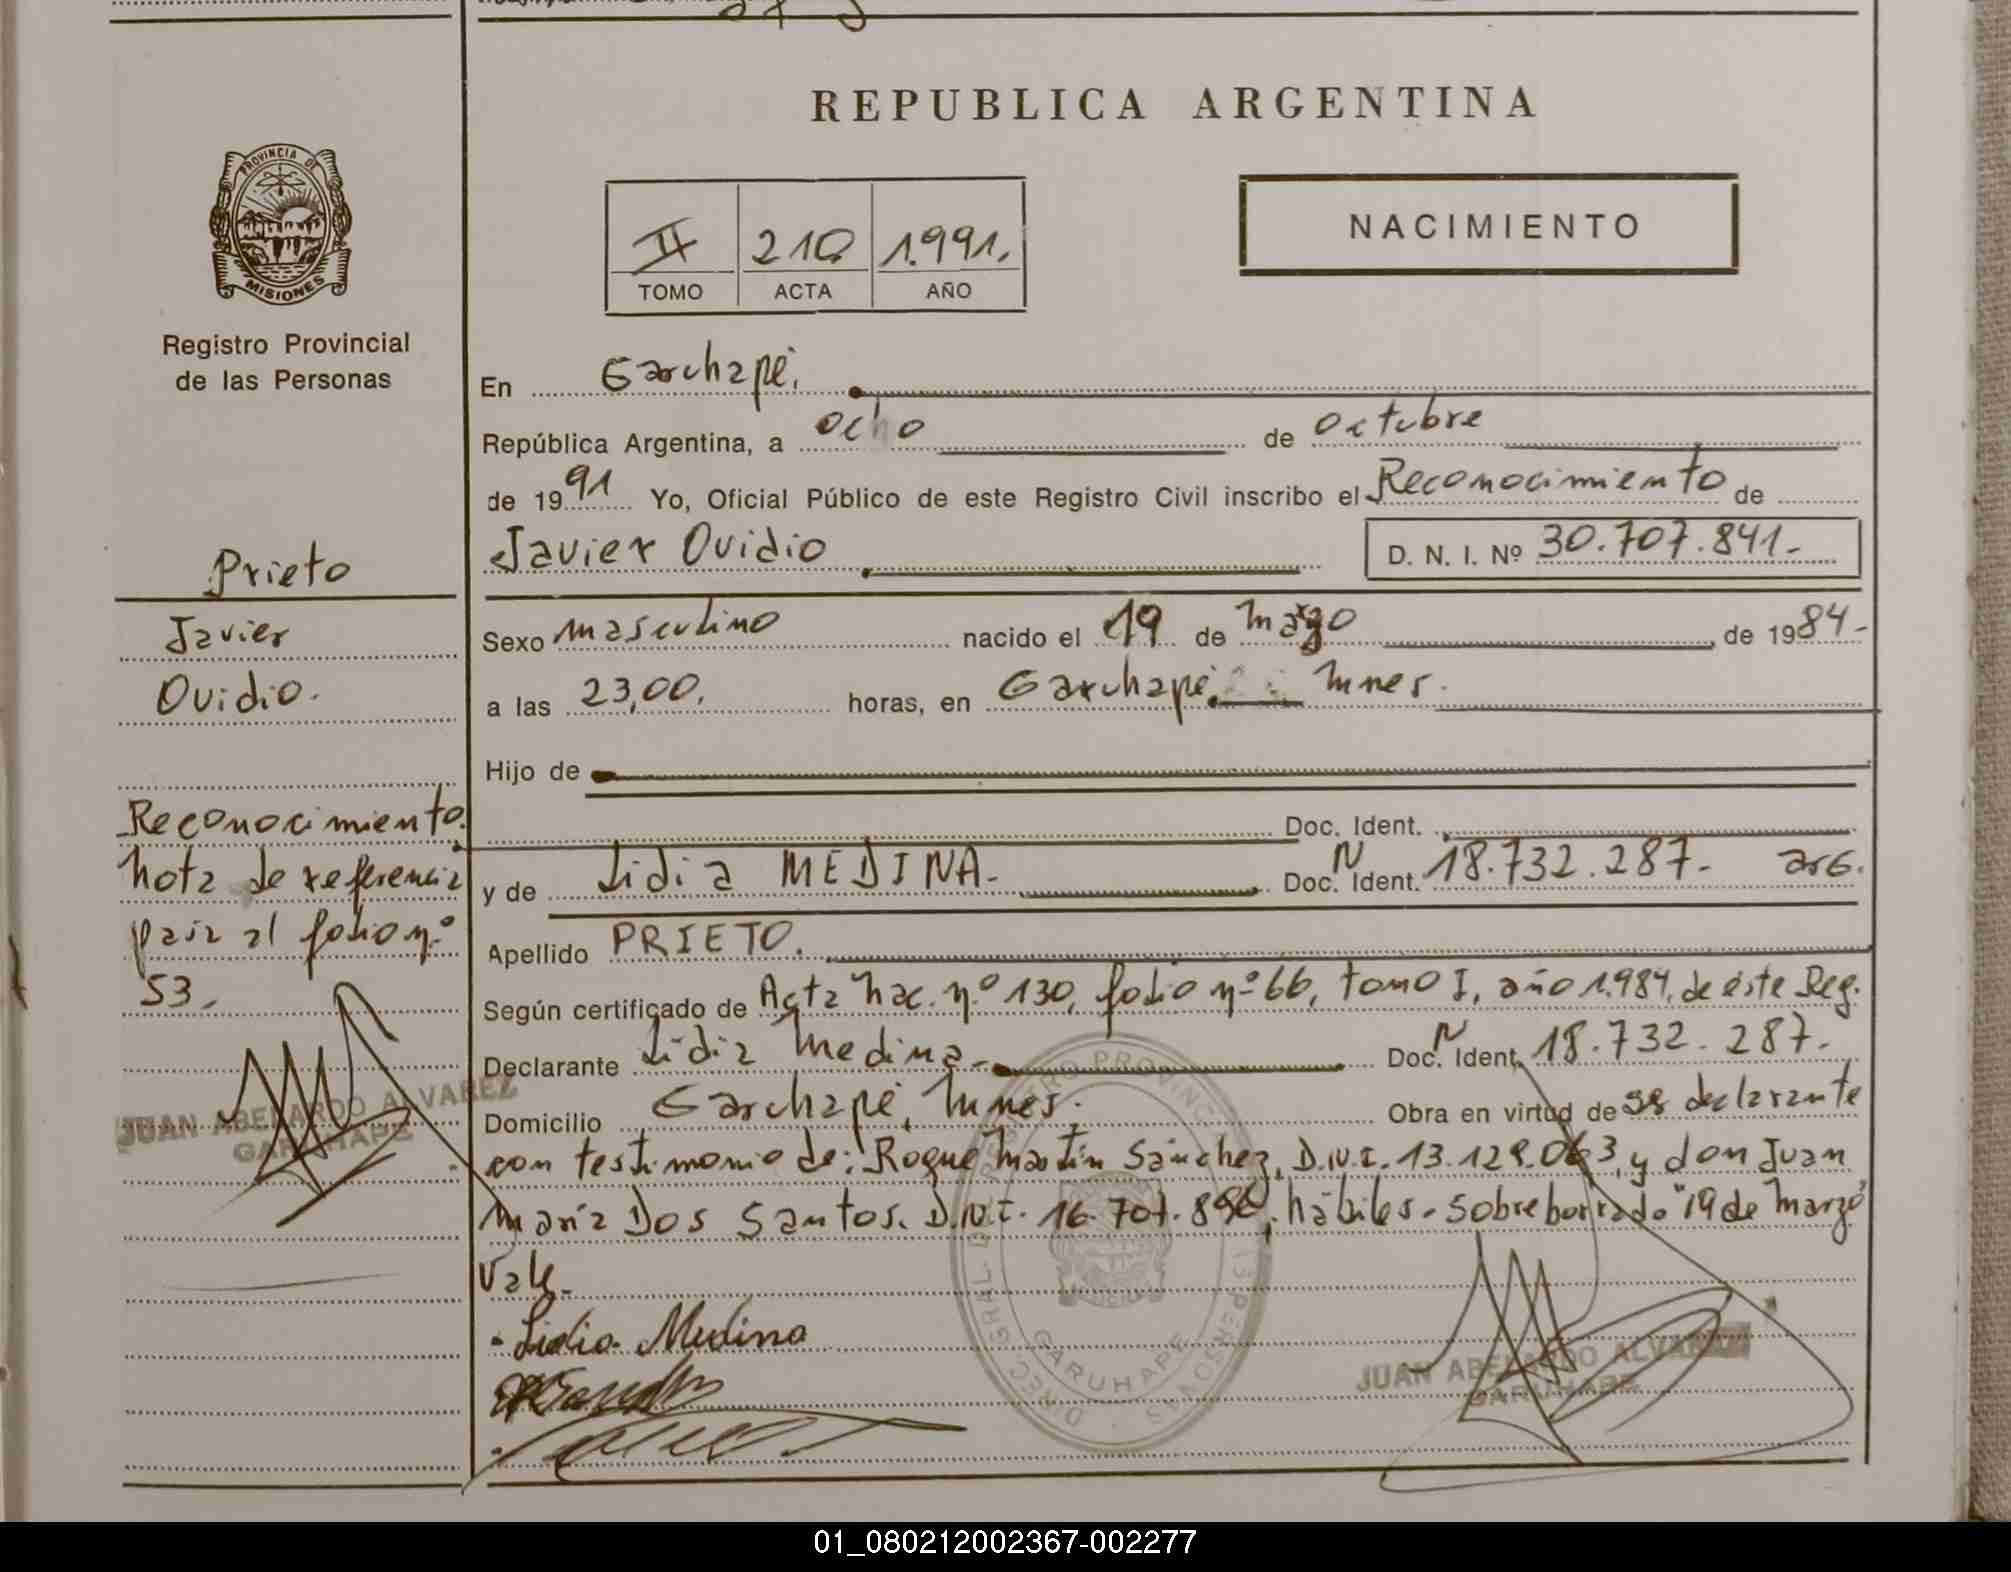 REPUBLICA ARGENTINA
PROVINCIA DE
MISIONES
Registro Provincial
de las Personas
II 210 1.991.
TOMO ACTA AÑO
NACIMIENTO
En Garuhapé.
República Argentina, a ocho de octubre
de 1991 Yo, Oficial Público de este Registro Civil inscribo el Reconocimiento de
Javier Ovidio D. N. I. Nº 30.707.841.-
Prieto
Javier
Ovidio.
Sexo masculino nacido el 19 de marzo, de 1984-
a las 23,00. horas, en Garuhapé. Mnes.
Hijo de
Doc. Ident.
y de Lidia MEDINA.- Doc. N Ident. 18.732.287.- arg.
Apellido PRIETO.
Reconocimiento.
Nota de referencia
pasa al folio nº
53.
Según certificado de Acta Nac. nº 130, folio nº 66, tomo I, año 1.984, de éste Reg.
Declarante Lidia Medina.- Doc. N Ident. 18.732.287.-
Domicilio Garuhapé, Mnes. Obra en virtud de ser declarante
con testimonio de: Roque Martín Sánchez, D.N.I. 13.129.063, y don Juan
María Dos Santos. D.N.I. 16.707.896, hábiles. Sobreborrado "19 de Marzo"
Vale.-
Lidia Medina
JUAN ABELARDO ALVAREZ
GARUHAPE
JUAN ABELARDO ALVAREZ
GARUHAPE
DIREC. GRAL. DEL REGISTRO PROVINCIAL DE LAS PERSONAS
GARUHAPE
01_080212002367-002277